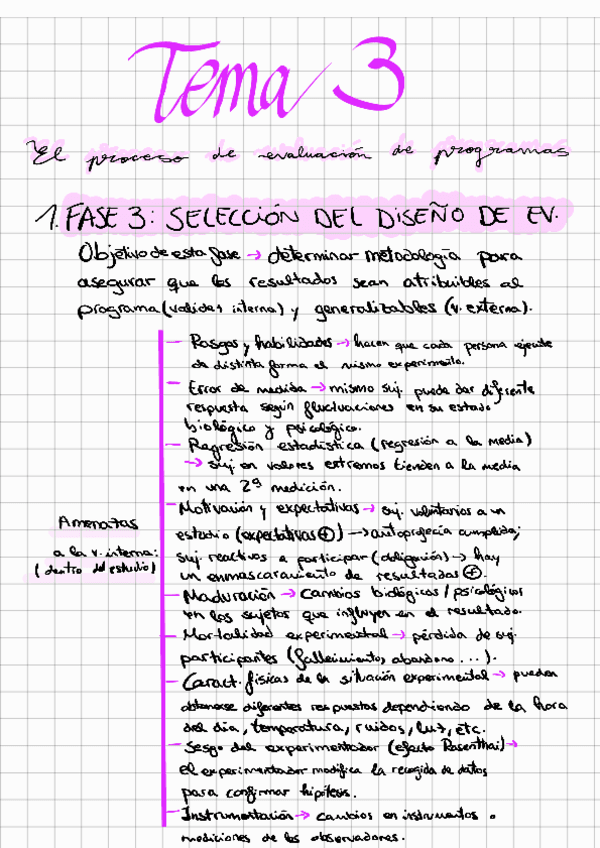 Tema 3
El proceso de evaluación de programas
1. FASE 3: SELECCIÓN DEL DISEÑO DE EV.
Objetivo de esta fase → determinar metodología para
asegurar que los resultados sean atribuibles al
programa (validez interna) y generalizables (v. externa).
Amenazas
a la v. interna:
(dentro del estudio)
- Rasgos y habilidades → hacen que cada persona ejecute
de distinta forma el mismo experimento.
- Error de medida → mismo suj. puede dar diferente
respuesta según fluctuaciones en su estado
biológico y psicológico.
- Regresión estadística (regresión a la media)
→ suj en valores extremos tienden a la media
en una 2ª medición.
- Motivación y expectativas → suj. voluntarios a un
estudio (expectativas ⊕) → autoprofecía cumplida;
suj reactivos a participar (obligación) → hay
un enmascaramiento de resultados ⊕.
- Maduración → cambios biológicos/psicológicos
en los sujetos que influyen en el resultado.
- Mortalidad experimental → pérdida de suj.
participantes (fallecimiento, abandono ...).
- Caract. físicas de la situación experimental → pueden
obtenerse diferentes respuestas dependiendo de la hora
del día, temperatura, ruidos, luz, etc.
- Sesgo del experimentador (efecto Rosenthal) →
el experimentador modifica la recogida de datos
para confirmar hipótesis.
- Instrumentación → cambios en instrumentos o
mediciones de los observadores.